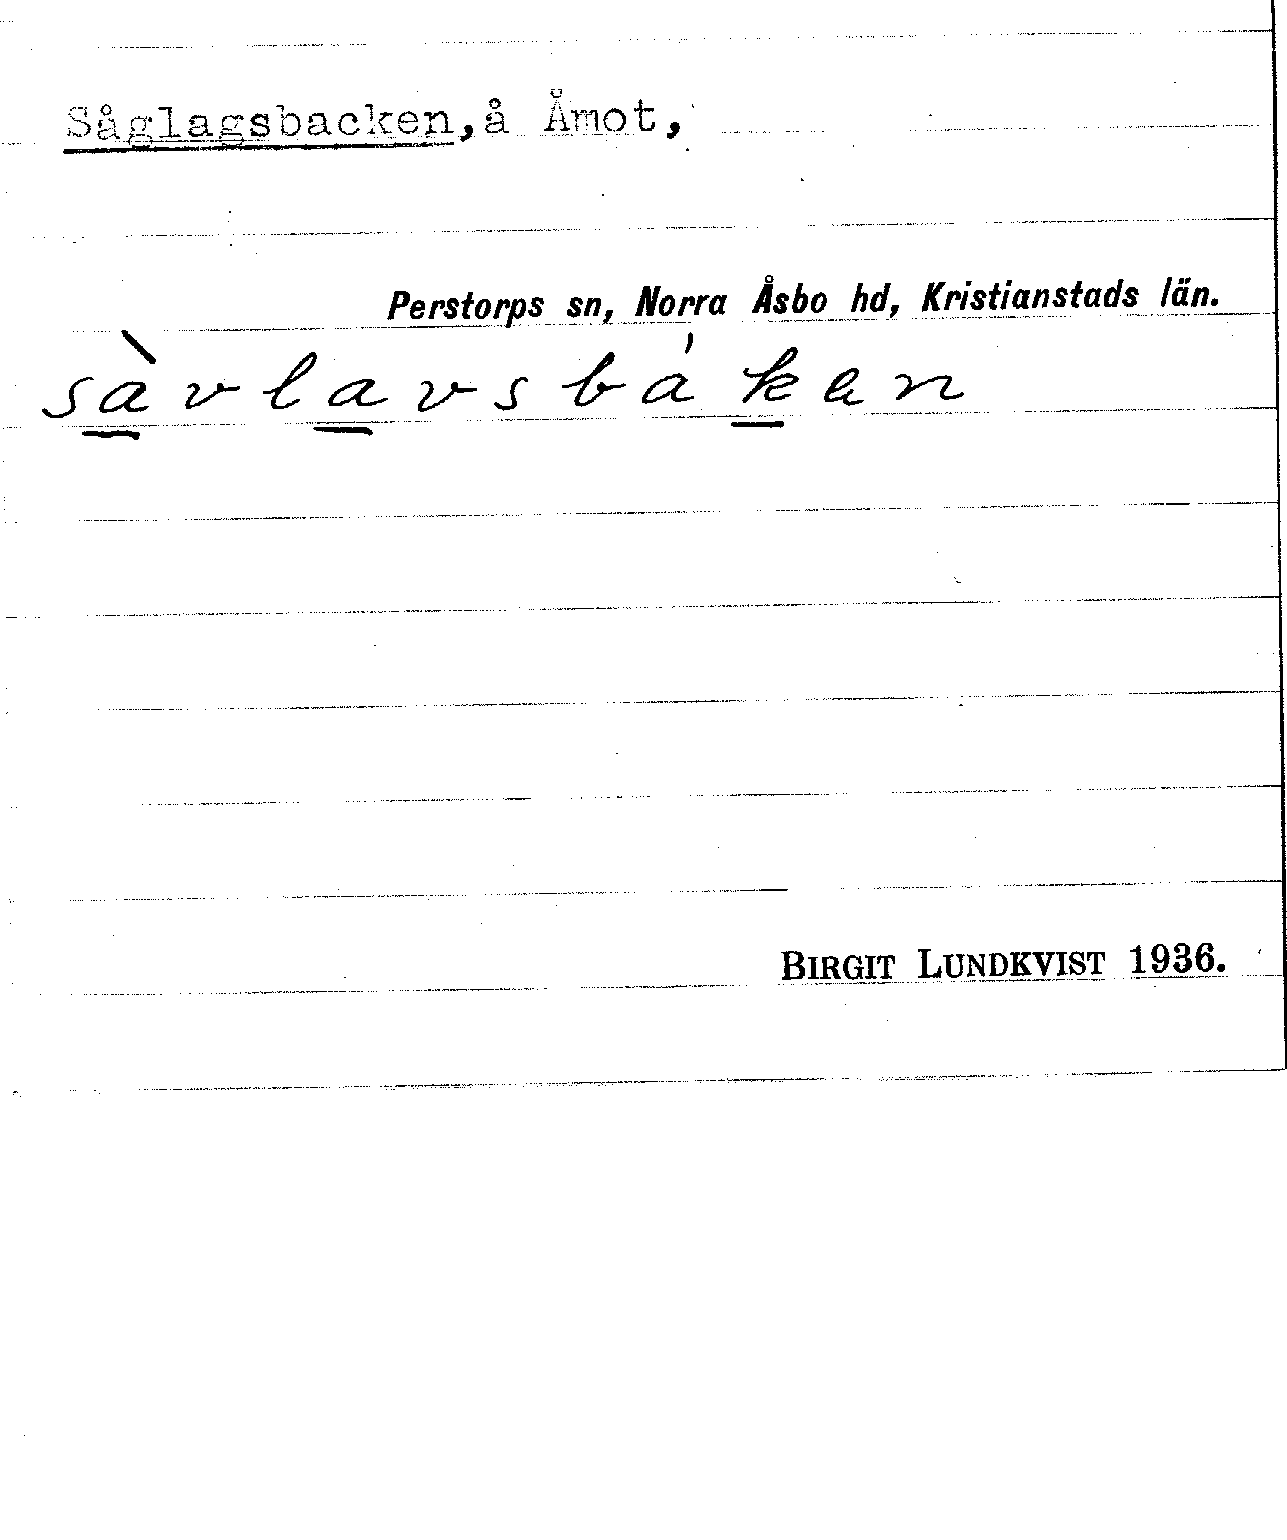 Såglagsbacken, å Åmot,
Perstorps sn, Norra Åsbo hd, Kristianstads län.
sàvlavsbákan
BIRGIT LUNDKVIST 1936.